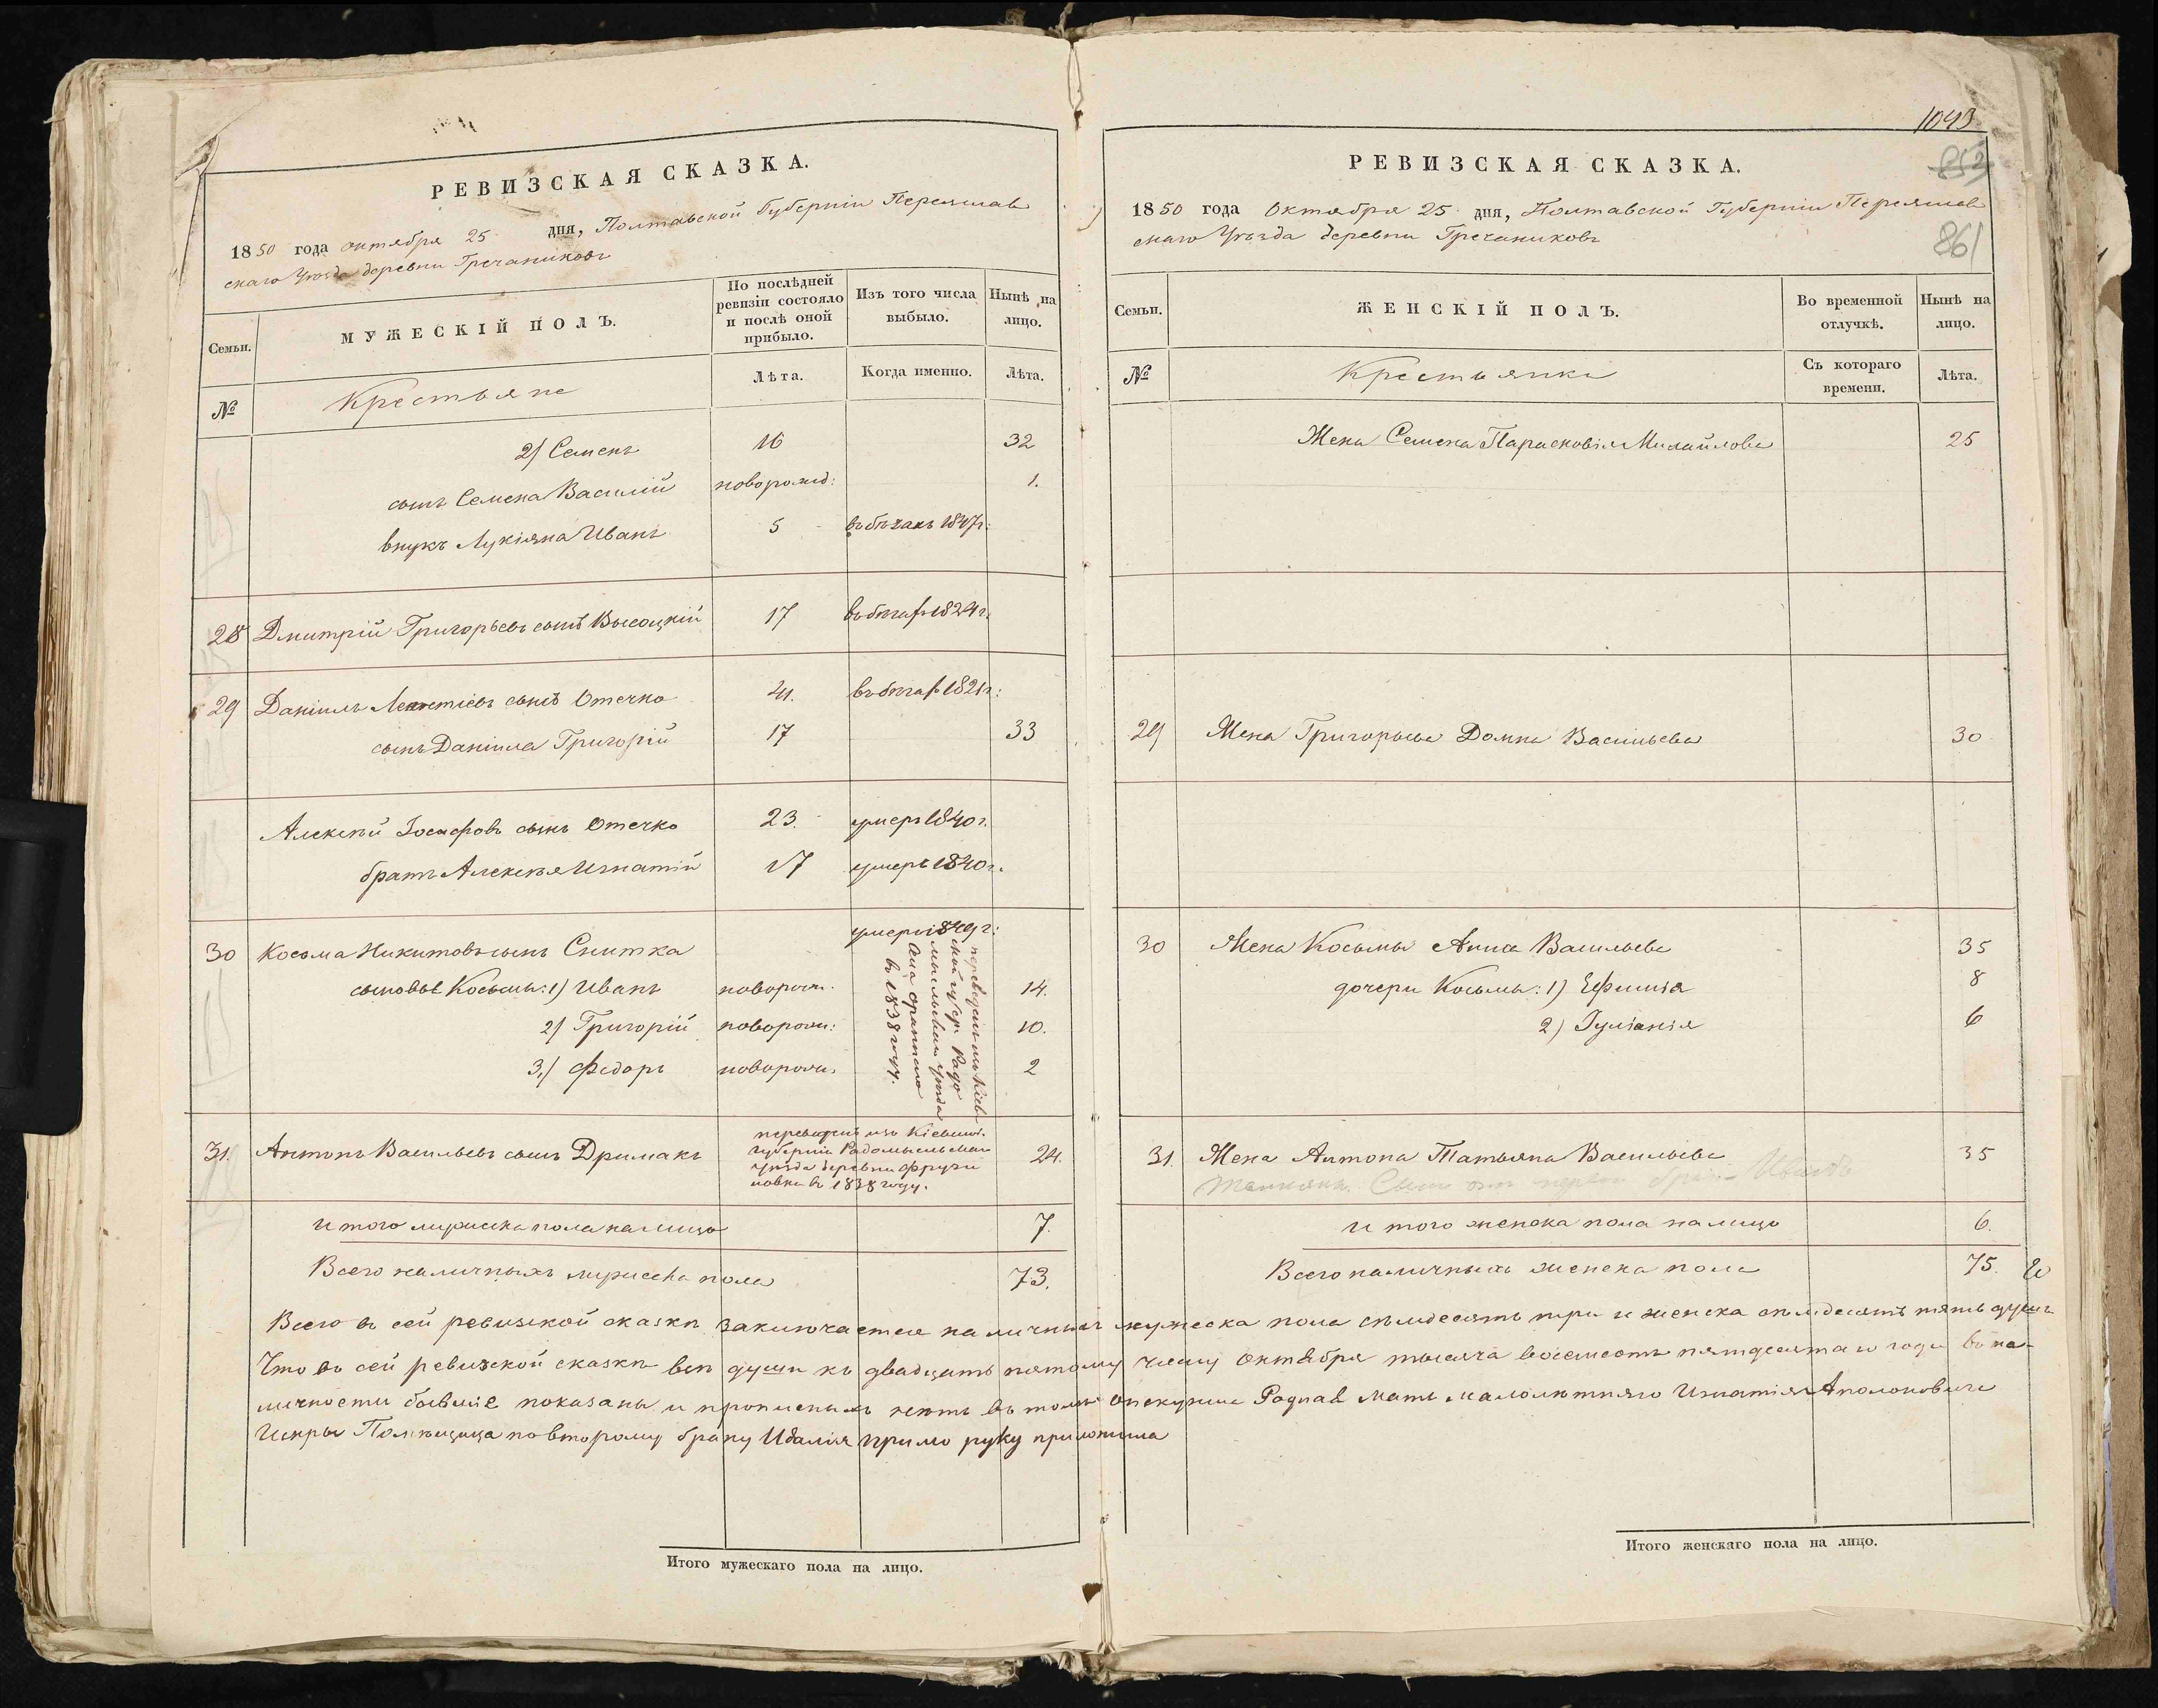 РЕВИЗСКАЯ СКАЗКА.
1850 года октября 25 дня, Полтавской Губерніи Переяслав
скаго Уезда деревни Гречаниковъ
Семьи.
МУЖЕСКІЙ ПОЛЪ.
По послѣдней ревизіи состояло и послѣ оной прибыло.
Изъ того числа выбыло.
Нынѣ на лицо.
№
Крестьяне
Лѣта.
Когда именно.
Лѣта.
2) Семенъ 16 32
сынъ Семена Василій новорожд: 1.
внукъ Лукіяна Иванъ 5 въ бегахъ 1847г.
28 Дмитрій Григорьевъ сынъ Высоцкій 17 въ бегах 1824г.
29 Даніилъ Леонтіевъ сынъ Отечко 41. въ бегах 1821г:
сынъ Даніила Григорій 17 33
Алексѣй Іосифовъ сынъ Отечко 23. умеръ 1840г.
братъ Алексѣя Игнатій 17 умеръ 1840г.
30 Косьма Никитовъ сынъ Снитка умеръ 1849г:
сыновья Косьмы: 1) Иванъ новорож. 14.
2) Григорій новорож: 10.
3) Федоръ новорож. 2
переведенъ изъ Кіев
ской губер. Радо
мысльскаго уезда
села
въ 1838 году.
31. Антонъ Васильевъ сынъ Дримакъ 24.
переведенъ изъ Кіевской
губерніи Радомысльскаго
уезда деревни Фрузи
новки въ 1838 году.
Итого мужеска пола на лицо 7.
Всего наличныхъ мужеска пола 73.
Итого мужескаго пола на лицо.
1043
852
861
РЕВИЗСКАЯ СКАЗКА.
1850 года Октября 25 дня, Полтавской Губерніи Переяслав
скаго Уезда деревни Гречаниковъ
Семьи.
ЖЕНСКІЙ ПОЛЪ.
Во временной отлучкѣ.
Нынѣ на лицо.
№
Крестьянки
Съ котораго времени.
Лѣта.
Жена Семена Парасковія Михайлова 25
29 Жена Григорья Домна Васильева 30
30 Жена Косьмы Анна Васильева 35
дочери Косьмы: 1) Ефимія 8
2) Іуліанія 6
31. Жена Антона Татьяна Васильева 35
Итого женска пола на лицо 6.
Всего наличныхъ женска пола 75.
Всего въ сей ревизской сказкѣ заключается наличныхъ мужеска пола семьдесятъ три и женска семьдесятъ пять душъ
Что въ сей ревизской сказкѣ все души къ двадцать пятому числу Октября тысяча восемьсотъ пятдесятаго года въ на-
личности бывшіе показаны и прописныхъ нетъ въ томъ опекунша Родная мать малолетняго Игнатія Аполоновича
Искры Помещица по второму браку Идалія руку приложила
Итого женскаго пола на лицо.